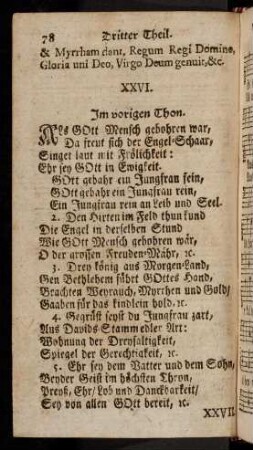 78 Dritter Theil.
& Myrrham dant, Regum Regi Domino,
Gloria uni Deo, Virgo Deum genuit, &c.
XXVI.
Im vorigen Thon.
Als GOtt Mensch gebohren war,
Da freut sich der Engel-Schaar,
Singet laut mit Frölichkeit:
Ehr sey GOtt in Ewigkeit.
GOtt gebahr ein Jungfrau fein,
GOtt gebahr ein Jungfrau rein,
Ein Jungfrau rein an Leib und Seel.
2. Den Hirten im Feld thun kund
Die Engel in derselben Stund
Wie GOtt Mensch gebohren wär,
O der grossen Freuden-Mähr, ꝛc.
3. Drey König aus Morgen-Land,
Gen Bethlehem führt GOttes Hand,
Brachten Weyrauch, Myrrhen und Gold/
Gaaben für das Kindlein hold, ꝛc.
4. Gegrüst seyst du Jungfrau zart,
Aus Davids-Stamm edler Art:
Wohnung der Dreyfaltigkeit,
Spiegel der Gerechtigkeit, ꝛc.
5. Ehr sey dem Vatter und dem Sohn,
Beyder Geist im höchsten Thron,
Preyß, Ehr/ Lob und Danckbarkeit/
Sey von allen GOtt bereit, ꝛc.
XXVII